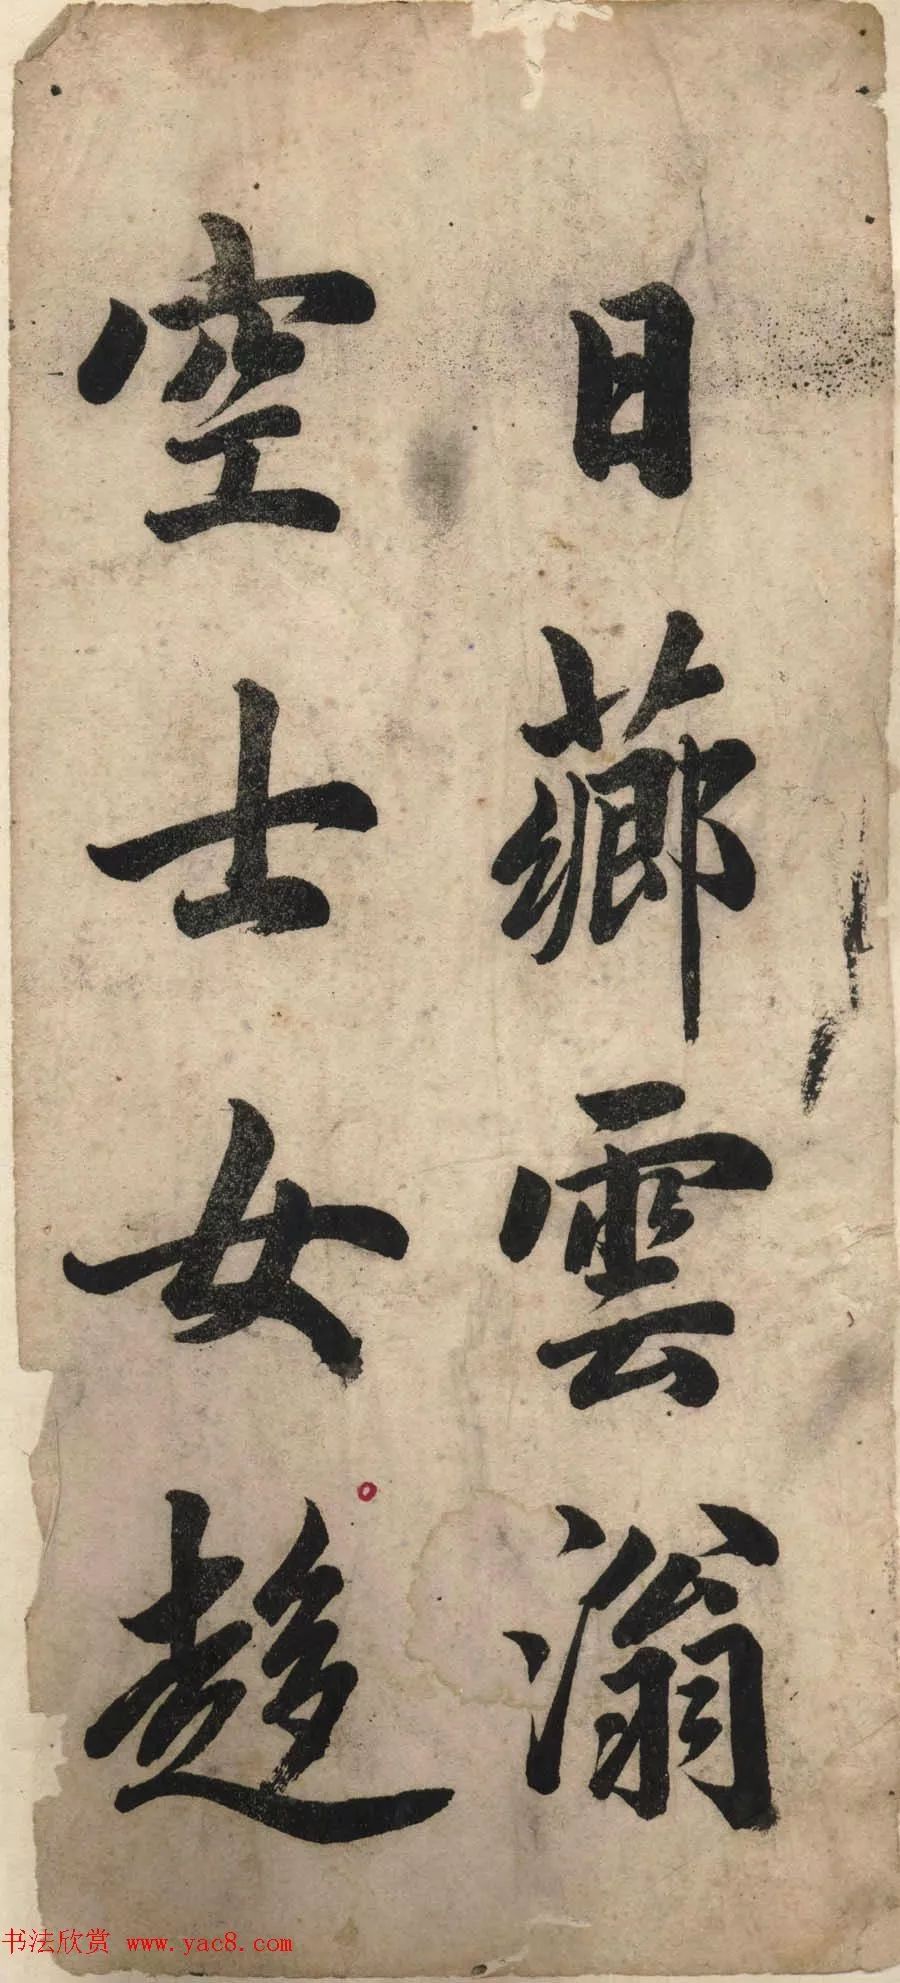 日薌雲滃
空士女趍
书法欣赏 www.yac8.com